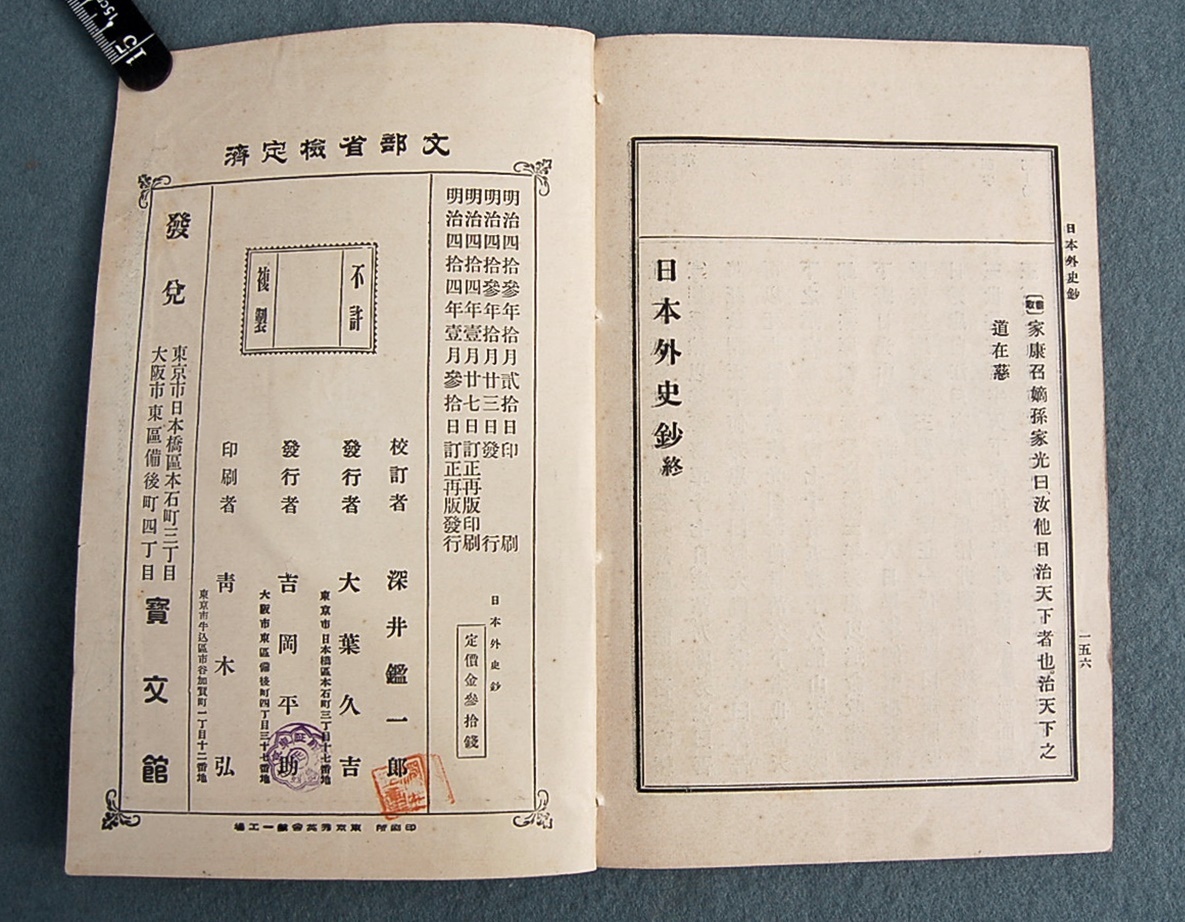 日本外史鈔
一五六
家康召嫡孫家光曰汝他日治天下者也治天下之
道在慈
日本外史鈔終
文部省檢定濟
明治四拾參年拾月貳拾日印刷
明治四拾參年拾月廿三日發行
明治四拾四年壹月廿七日訂正再版印刷
明治四拾四年壹月參拾日訂正再版發行
日本外史鈔
定價金參拾錢
不許
複製
校訂者 深井鑑一郎
發行者 大葉久吉
東京市日本橋區本石町三丁目十七番地
發行者 吉岡平助
大阪市東區備後町四丁目三十七番地
印刷者 青木弘
東京市牛込區市谷加賀町一丁目十二番地
發兌
東京市日本橋區本石町三丁目
大阪市東區備後町四丁目
寶文館
印刷所 東京秀英舍第一工場
15